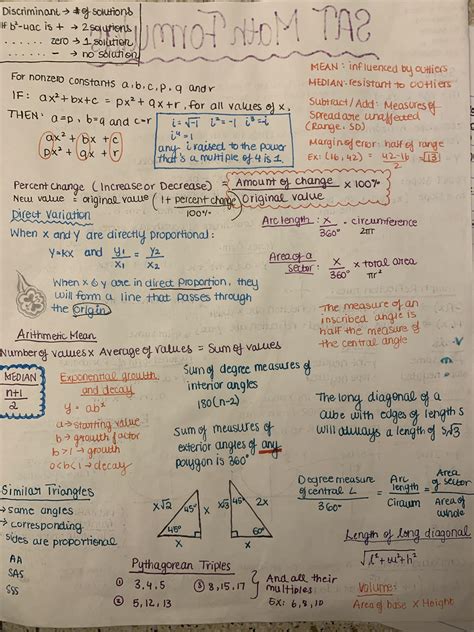 Discriminant → # of solutions
If b²-4ac is + → 2 solutions
..... zero → 1 solution
.... - → no solution
SAT Math Formu
For nonzero constants a, b, c, p, q and r
IF: ax² + bx + c = px² + qx + r, for all values of x,
THEN: a=p, b=q and c=r
ax² + bx + c
px² + qx + r
i = √-1 i² = -1 i³ = -i
i⁴ = 1
any i raised to the power
that's a multiple of 4 is 1.
MEAN: influenced by outliers
MEDIAN: resistant to outliers
Subtract/Add: Measures of
Spread are unaffected
(Range, SD)
Margin of error: half of range
Ex: (16, 42) = 42-16
2
Percent change (Increase or Decrease) = Amount of change x 100%
Original value
New value = original value (1 + percent change)
100%
Direct Variation
When x and y are directly proportional:
y=kx and y₁ = y₂
x₁ x₂
When x & y are in direct proportion, they
will form a line that passes through
the origin
Arc length: x . circumference
360° 2πr
Area of a sector: x x total area
360° πr²
The measure of an
inscribed angle is
half the measure of
the central angle
Arithmetic Mean
Number of values x Average of values = Sum of values
MEDIAN
n+1
2
Exponential growth
and decay
y = abˣ
a → starting value
b → growth factor
b>1 → growth
0<b<1 → decay
Sum of degree measures of
interior angles
180(n-2)
Sum of measures of
exterior angles of any
polygon is 360°
The long diagonal of a
cube with edges of length s
will always a length of s√3
Similar Triangles
→ same angles
→ corresponding
sides are proportional
AA
SAS
SSS
x√2 45° x
45°
x
x√3 45° 2x
60°
x
Degree measure of central ∠ = Arc length = Area of sector
360° Circum Area of whole
Length of long diagonal
√l²+w²+h²
Pythagorean Triples
① 3,4,5 ③ 8,15,17
② 5,12,13
And all their
multiples
Ex: 6,8,10
Volume:
Area of base x Height